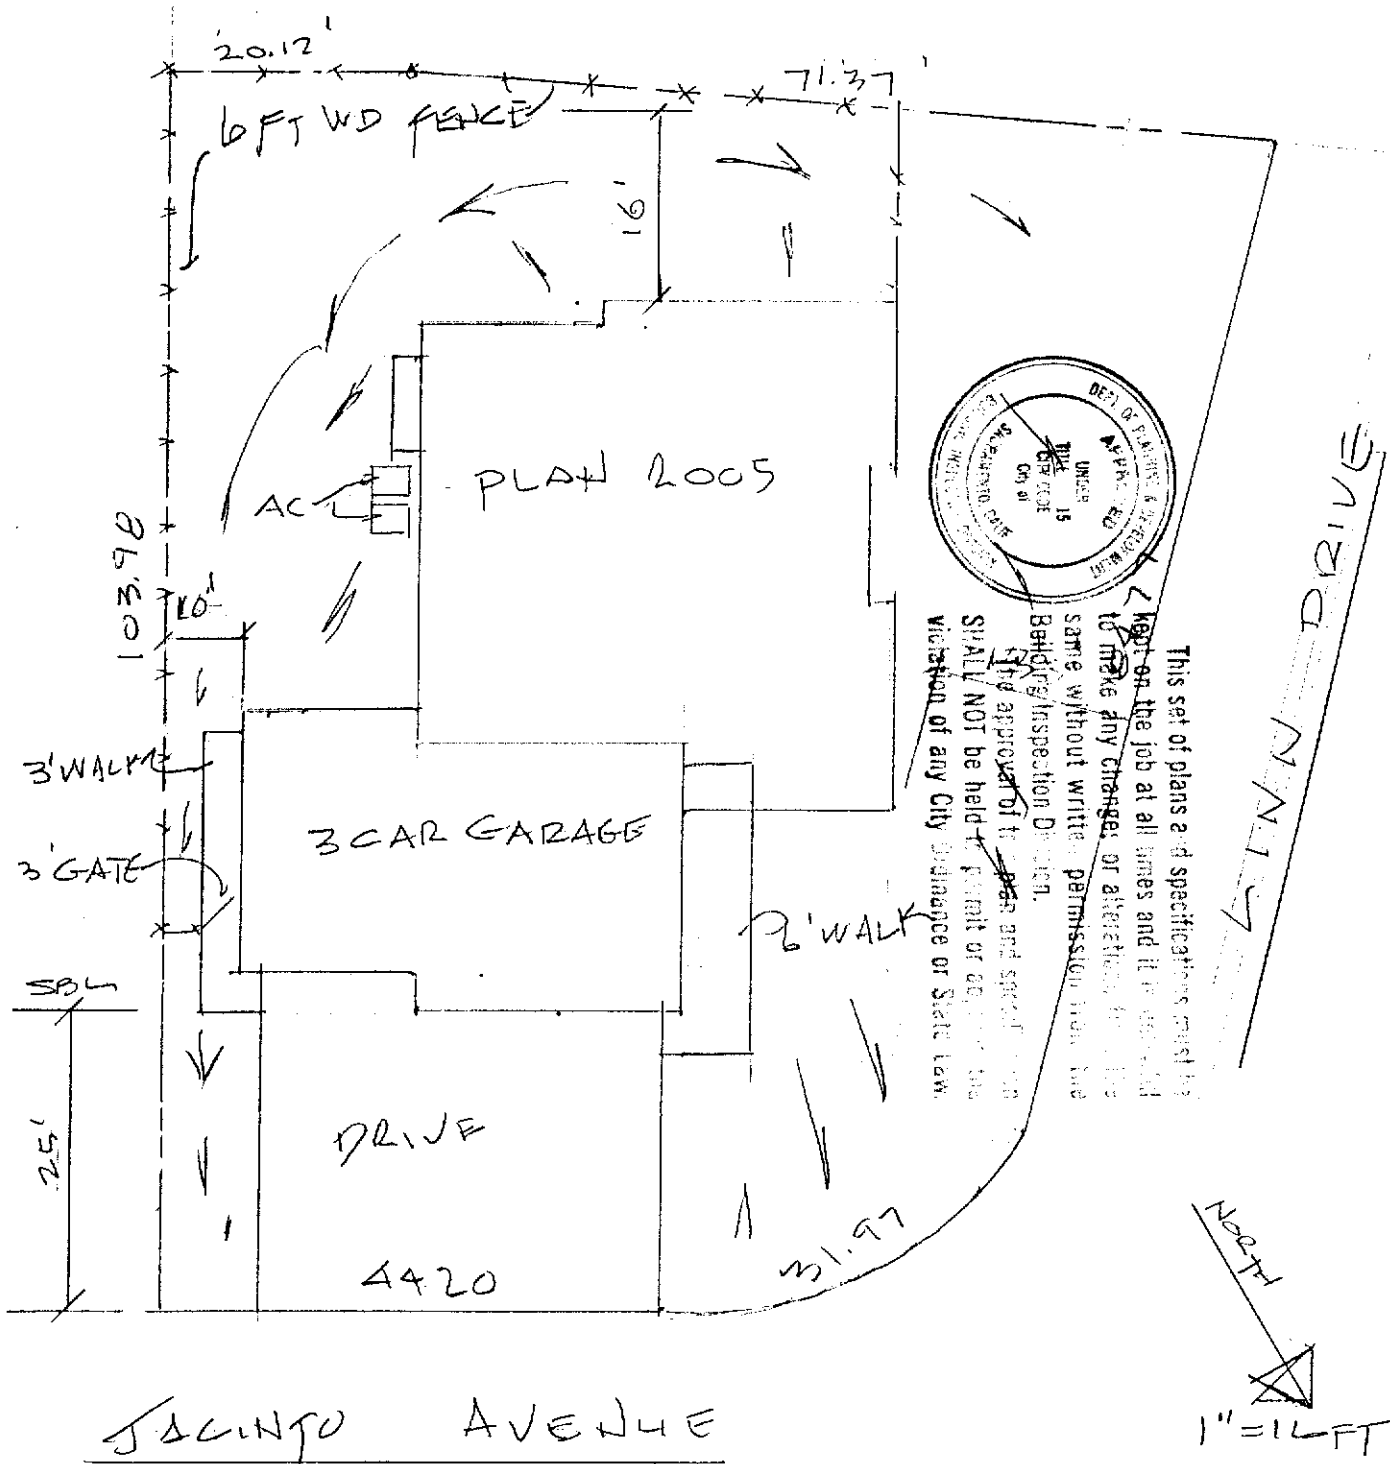 20.12'
71.37'
6 FT WD FENCE
16'
PLAN 2005
AC
103.98
10'
3' WALK
3' GATE
3 CAR GARAGE
6' WALK
SBL
25'
DRIVE
4420
31.97
JACINTO AVENUE
LINN DRIVE
NORTH
DEPT. OF PLANNING & DEVELOPMENT
APPROVED
UNDER
TITLE 15
CITY CODE
City of
SACRAMENTO CALIF
This set of plans and specifications must be
kept on the job at all times and it is
to make any changes or alterations
same without written permission from the
Building Inspection Division.
The approval of this plan and
SHALL NOT be held to permit or the
violation of any City Ordinance or State Law.